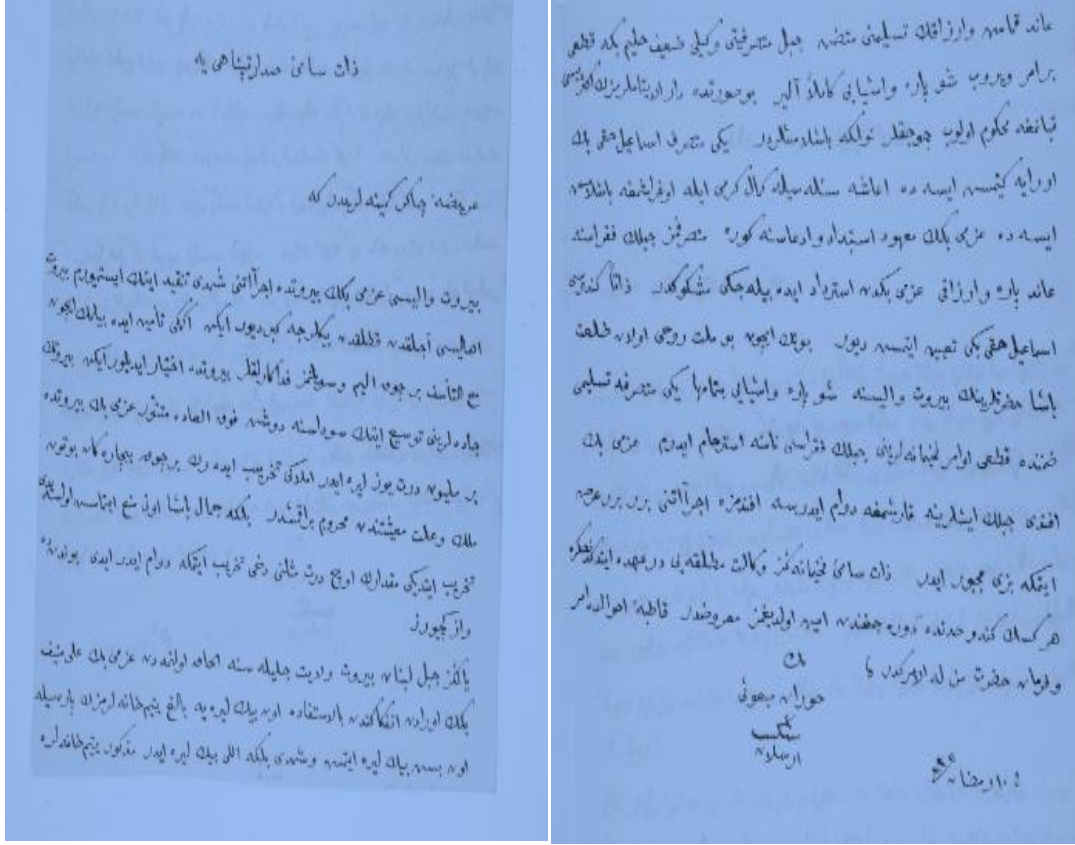 ذات سامئ صدارتپناهی یه
معروضهٔ چاکر کمینه لریدر که
بیروت والیسی عزمی بکك بیروتده اجراآتنی شمدی تنقید ایتك ایستمیورم بیروت
اهالیسی آجلقدن قیریلیرکن ایکن اکمکی تأمین ایده بیلمك ایچون
مع التأسف بر چوق الیم وسویلنمز فداکارلقلر بیروتده اختیار ایدیلور ایکن بیروتك
جاده لرینی توسیع ایتك سوداسنه دوشن فوق العاده متهور عزمی بك بیروتده
بر ملیون درت یوز لیره ایدر املاکی تخریب ایده رك بر چوق بیچاره کان بوتون
ملك وعلت معیشتندن محروم براقمشدر بلکه جمال پاشا اونی منع ایتمامش اولسه ایدی
تخریب ایتدیکی مقدارك اوچ درت مثلنی دخی تخریب ایتمکه دوام ایدر ایدی بوندن ده
واز کچیورز
یالکز جبل لبنان بیروت ولایت جلیله سنه الحاق اولنه رق عزمی بك علی منیف
بکك اورادن انفکاکندن بالاستفاده اون بیك لیره یه بالغ یتیمخانه لرمزك پاره سیله
اون بش بیك لیره ایتمش وشمدی بلکه اللی بیك لیره ایدر مذکور یتیمخانه لره
عائد قماش وارزاقك تسلیمنی متضمن جبل متصرفیتی وکیلی ضعیف حلیم بکه قطعی
بر امر ویروب شو پاره واشیایی کاملاً آلیر بوصورتده دار الایتاملریمزك
قپانمغه محکوم اولوب چوجقلر ئولمکه باشلامشلردر یکی متصرف اسماعیل حقی بك
اورایه کیتمش ایسه ده اعاشه مسئله سیله کمال کرمی ایله اوغراشمغه باشلامش
ایسه ده عزمی بکك معهود استبداد وادعاسنه کوره متصرفمز جبلك فقراسنه
عائد پاره وارزاقی عزمی بکدن استرداد ایده بیله جکی مشکوکدر ذاتاً کندیسی
اسماعیل حقی بکی تعیین ایتمش دیور بونك ایچون بو ملت روحی اولان طلعت
پاشا حضرتلرینك بیروت والیسنه شو پاره واشیایی بتمامها یکی متصرفه تسلیمی
ضمننده قطعی اوامر فخیمانه لرینی جبلك فقراسی نامنه استرحام ایدرم عزمی بك
افندی جبلك ایشلرینه قارشمغه دوام ایدرسه افندمزه اجراآتنی برر برر عرض
ایتمکه بزی مجبور ایدر ذات سامئ فخیمانه کز وکالت مطلقه یی در عهده ایتدکدنصکره
هر کسك کندو حدنده توره جغندن امین اولدیغمز معروضدر قاطبهٔ احوالده امر
وفرمان حضرت من له الامرکدر
بك
حوران مبعوثی
شکیب
ارسلان
فی ١٠ رمضان ٣٣٥